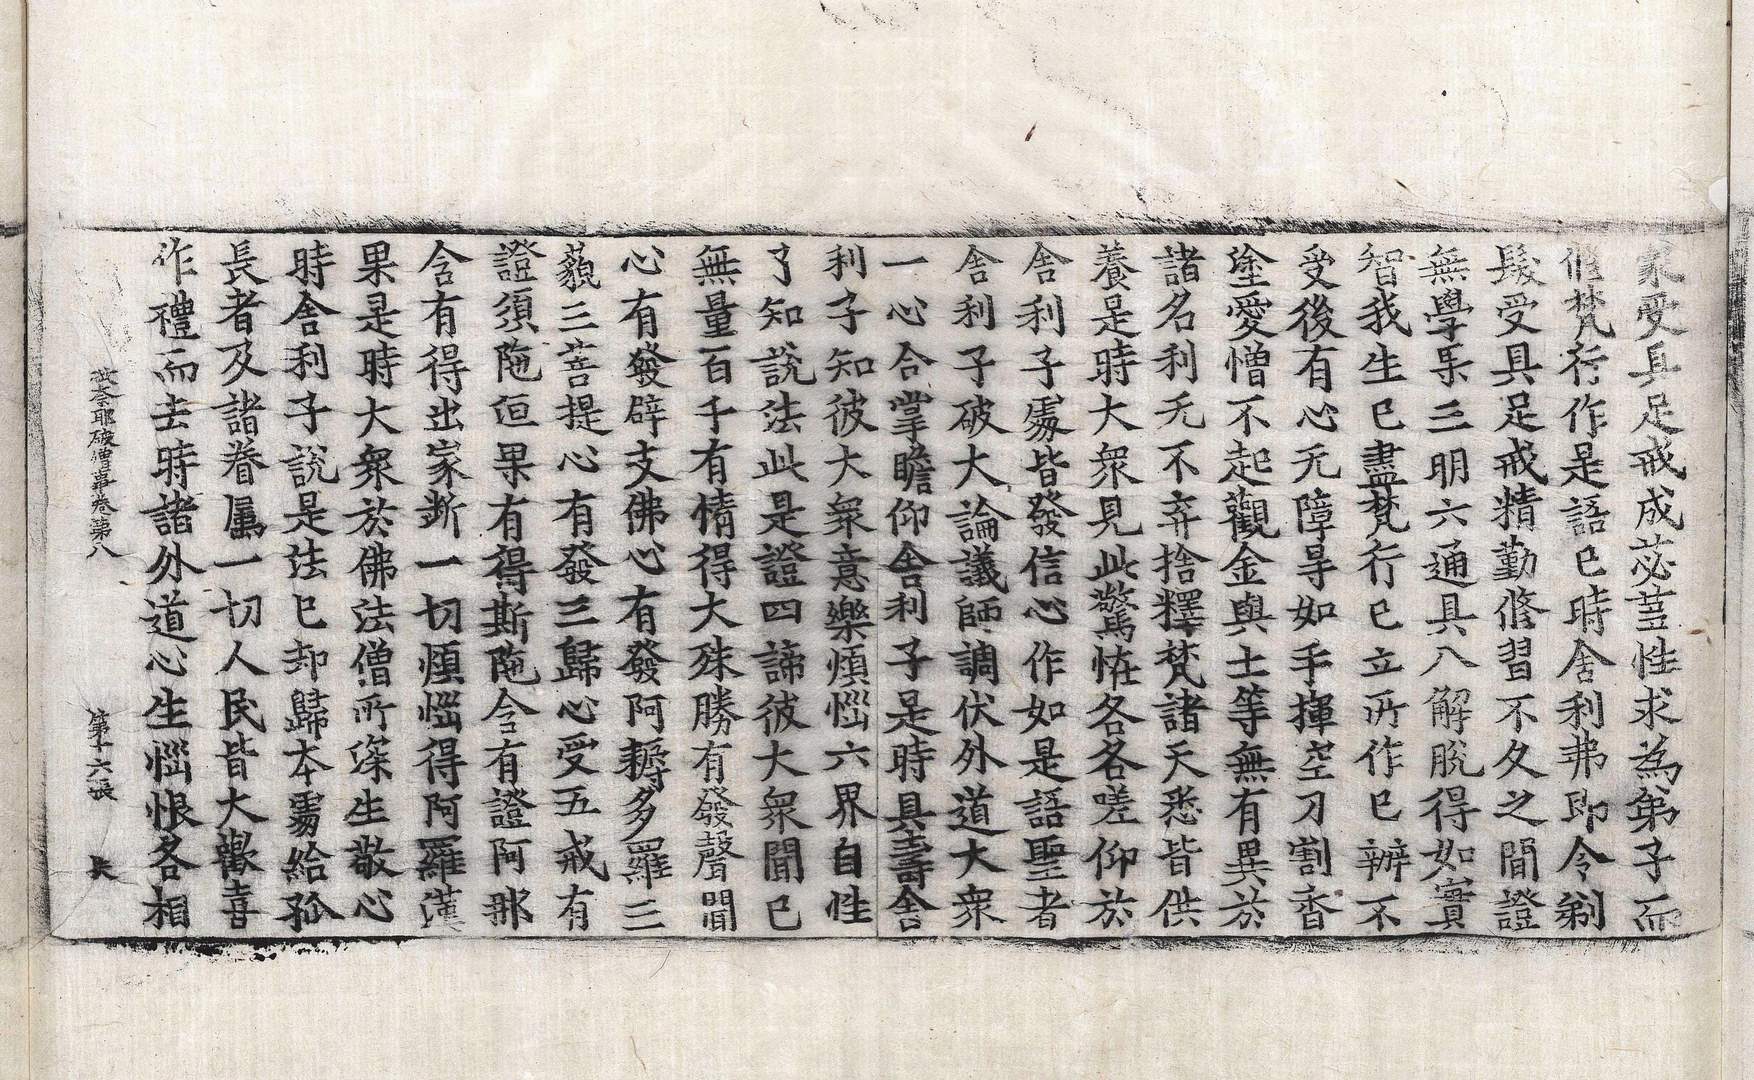 家受具足戒成苾芻性求為弟子而
脩梵行作是語已時舍利弗即令剃
髮受具足戒精勤脩習不久之間證
無學果三明六通具八解脫得如實
智我生已盡梵行已立所作已辦不
受後有心无障㝵如手撝空刀割香
塗愛憎不起觀金與土等無有異於
諸名利无不弃捨釋梵諸天悉皆供
養是時大衆見此驚恠各各嗟仰於
舍利子處皆發信心作如是語聖者
舍利子破大論議師調伏外道大衆
一心合掌瞻仰舍利子是時具壽舍
利子知彼大衆意樂煩惱六界自性
了知說法此是證四諦彼大衆聞已
無量百千有情得大殊勝有發聲聞
心有發辟支佛心有發阿耨多羅三
藐三菩提心有發三歸心受五戒有
證須陁洹果有得斯陁含有證阿那
含有得出家斷一切煩惱得阿羅漢
果是時大衆於佛法僧所深生敬心
時舍利子說是法已却歸本處給孤
長者及諸眷屬一切人民皆大歡喜
作禮而去時諸外道心生惱恨各相
奈耶破僧事卷第八 第十六張